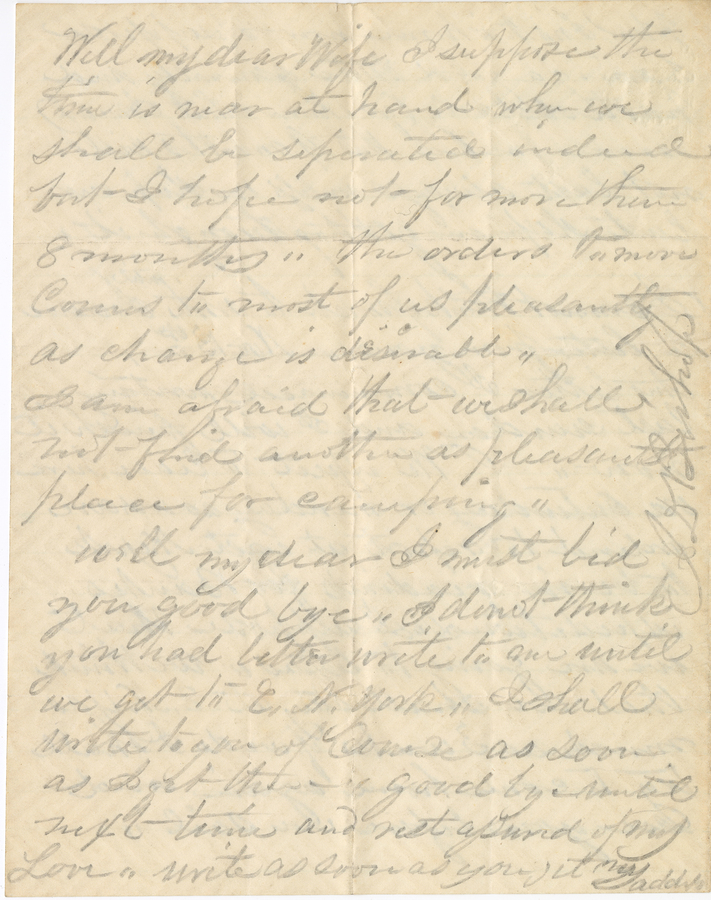 Well my dear Wife I suppose the
time is near at hand when we
shall be seperated indeed
but I hope not for more then
8 months " the orders to move
Comes to most of us pleasantly
as change is desirable "
I am afraid that we shall
not find another as pleasant
place for camping "
well my dear I must bid
you good bye " I do not think
you had better write to me until
we get to E. N. York " I shall
write to you of Course as soon
as I get there " good bye until
next time and rest asured of my
Love " write as soon as you get my
address
Bishop